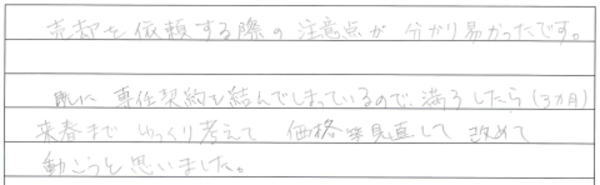 売却を依頼する際の注意点が分かり易かったです。
既に専任契約を結んでしまっているので、満了したら(3ヵ月)
来春までゆっくり考えて 価格等見直して 改めて
動こうと思いました。